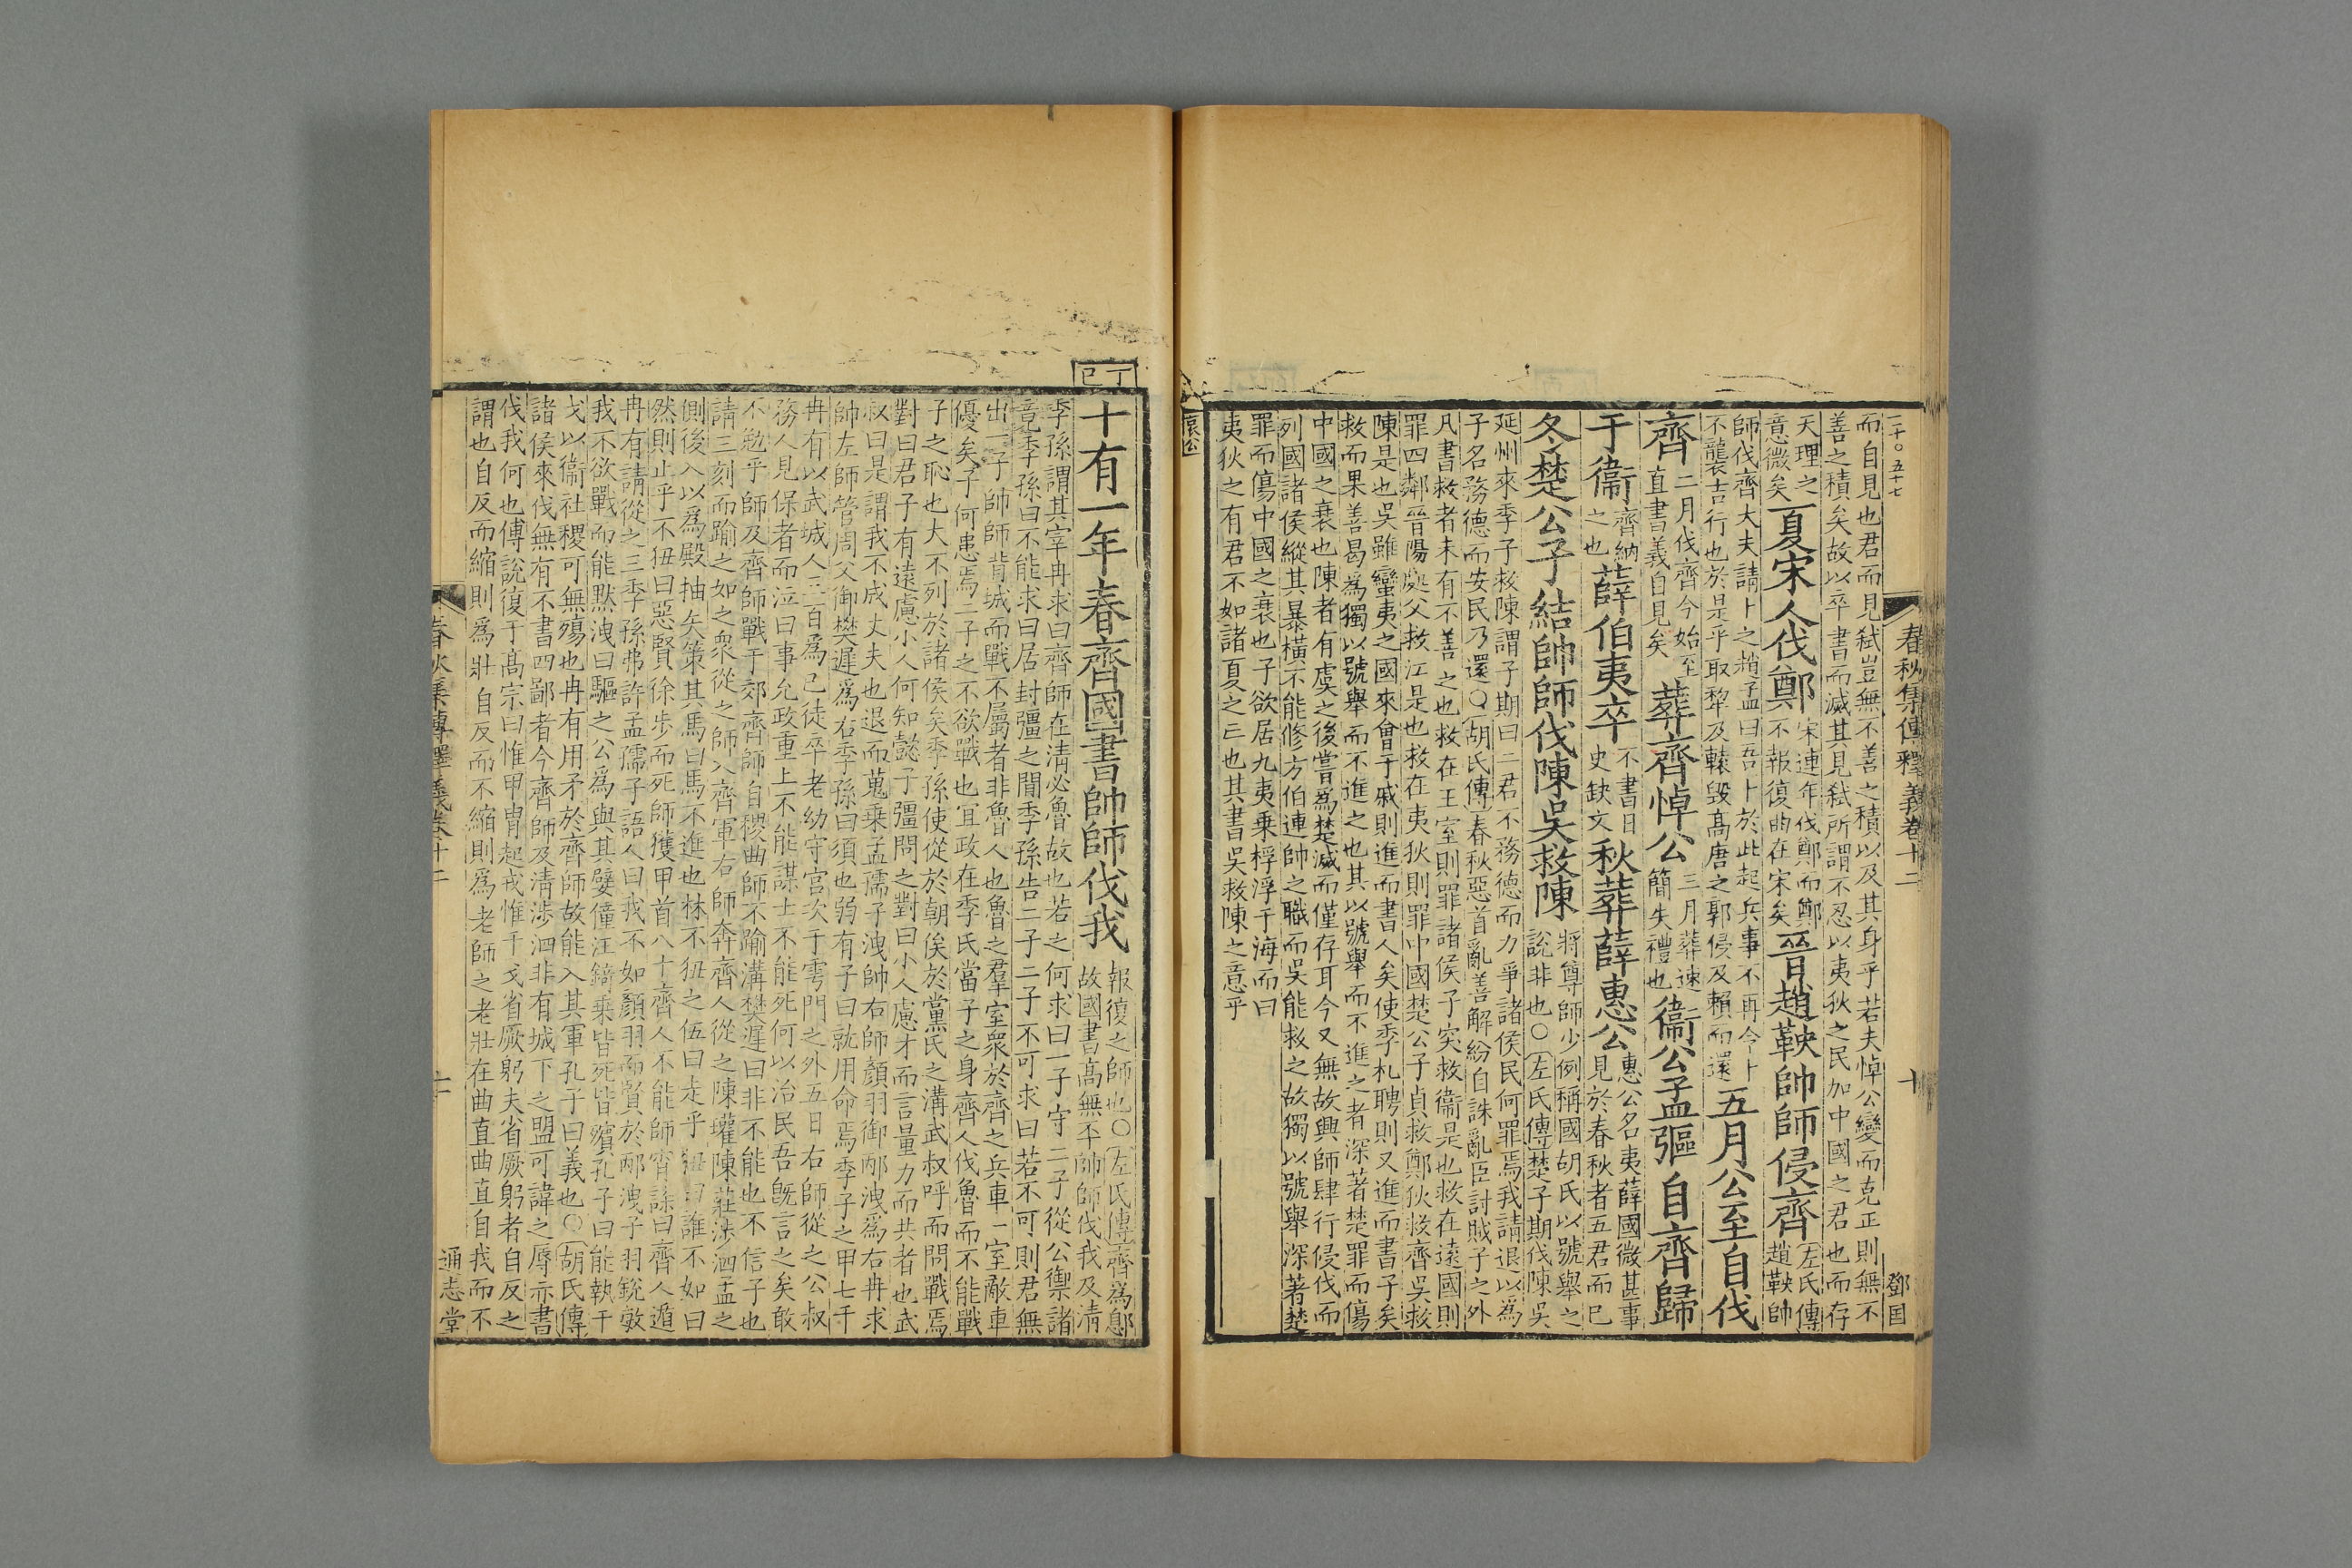 二十〇五十七
春秋集傳釋義卷十二
十
鄧国
而自見也君而見弑豈無不善之積以及其身乎若夫悼公變而克正則無不
善之積矣故以卒書而滅其見弑所謂不忍以夷狄之民加中國之君也而存
天理之
意微矣
夏宋人伐鄭
宋連年伐鄭而鄭
不報復曲在宋矣
晉趙鞅帥師侵齊
左氏傳
趙鞅帥
師伐齊大夫請卜之趙孟曰吾卜於此起兵事不再令卜
不襲吉行也於是乎取犂及轅毀高唐之郭侵及賴而還
五月公至自伐
齊
二月伐齊今始至
直書義自見矣
葬齊悼公
三月葬速
簡失禮也
衞公孟彄自齊歸
于衞
齊納
之也
薛伯夷卒
不書日
史缺文
秋葬薛惠公
惠公名夷薛國微其事
見於春秋者五君而已
冬楚公子結帥師伐陳吳救陳
將尊師少例稱國胡氏以號舉之
說非也〇左氏傳楚子期伐陳吳
延州來季子救陳謂子期曰二君不務德而力爭諸侯民何罪焉我請退以爲
子名務德而安民乃還〇胡氏傳春秋惡首亂善解紛自誅亂臣討賊子之外
凡書救者未有不善之也救在王室則罪諸侯子突救衞是也救在遠國則
罪四鄰晉陽處父救江是也救在夷狄則罪中國楚公子貞救鄭狄救齊吳救
陳是也吳雖蠻夷之國來會于戚則進而書人矣使季札聘則又進而書子矣
救而果善曷爲獨以號舉而不進之也其以號舉而不進之者深著楚罪而傷
中國之衰也陳者有虞之後嘗爲楚滅而僅存耳今又無故興師肆行侵伐而
列國諸侯縱其暴橫不能修方伯連帥之職而吳能救之故獨以號舉深著楚
罪而傷中國之衰也子欲居九夷乗桴浮于海而曰
夷狄之有君不如諸夏之亡也其書吳救陳之意乎
哀公
丁巳
十有一年春齊國書帥師伐我
報復之師也〇左氏傳齊爲鄎
故國書高無㔻帥師伐我及清
季孫謂其宰冉求曰齊師在淸必魯故也若之何求曰一子守二子從公禦諸
竟季孫曰不能求曰居封疆之間季孫告二子二子不可求曰若不可則君無
出一子帥師背城而戰不屬者非魯人也魯之羣室衆於齊之兵車一室敵車
優矣子何患焉二子之不欲戰也宜政在季氏當子之身齊人伐魯而不能戰
子之恥也大不列於諸侯矣季孫使從於朝俟於黨氏之溝武叔呼而問戰焉
對曰君子有遠慮小人何知懿子彊問之對曰小人慮才而言量力而共者也武
叔曰是謂我不成丈夫也退而蒐乗孟孺子洩帥右師顏羽御邴洩爲右冉求
帥左師管周父御樊遲爲右季孫曰須也弱有子曰就用命焉季子之甲七千
冉有以武城人三百爲己徒卒老幼守宮次于雩門之外五日右師從之公叔
務人見保者而泣曰事允政重上不能謀士不能死何以治民吾既言之矣敢
不勉乎師及齊師戰于郊齊師自稷曲師不踰溝樊遲曰非不能也不信子也
請三刻而踰之如之衆從之師入齊軍右師奔齊人從之陳瓘陳莊涉泗孟之
側後入以爲殿抽矢策其馬曰馬不進也林不狃之伍曰走乎不狃曰誰不如曰
然則止乎不狃曰惡賢徐步而死師獲甲首八十齊人不能師宵諜曰齊人遁
冉有請從之三季孫弗許孟孺子語人曰我不如顏羽而賢於邴洩子羽銳敏
我不欲戰而能默洩曰驅之公爲與其嬖僮汪錡乗皆死皆殯孔子曰能執干
戈以衞社稷可無殤也冉有用矛於齊師故能入其軍孔子曰義也〇胡氏傳
諸侯來伐無有不書四鄙者今齊師及淸涉泗非有城下之盟可諱之辱亦書
伐我何也傳說復于高宗曰惟甲冑起戎惟干戈省厥躬夫省厥躬者自反之
謂也自反而縮則爲壯自反而不縮則爲老師之老壯在曲直曲直自我而不
春秋集傳釋義卷十二
十一
通志堂